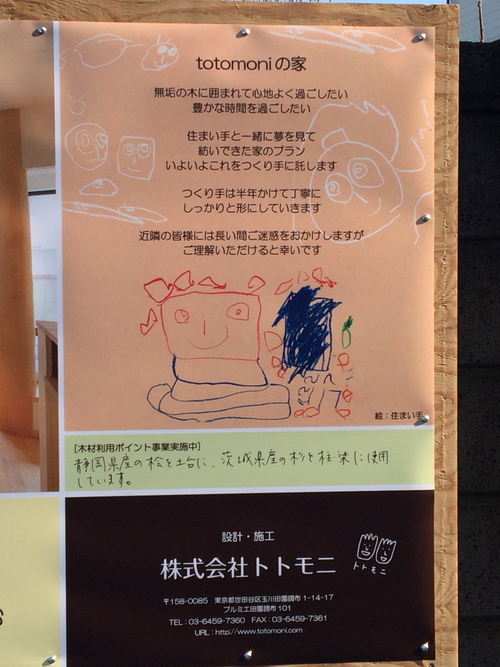 totomoniの家
無垢の木に囲まれて心地よく過ごしたい
豊かな時間を過ごしたい
住まい手と一緒に夢を見て
紡いできた家のプラン
いよいよこれをつくり手に託します
つくり手は半年かけて丁寧に
しっかりと形にしていきます
近隣の皆様には長い間ご迷惑をおかけしますが
ご理解いただけると幸いです
絵:住まい手
[木材利用ポイント事業実施中]
静岡県産の桧を土台に、茨城県産の杉を柱・梁に使用
しています。
設計・施工
株式会社トトモニ
トトモニ
〒158-0085 東京都世田谷区玉川田園調布1-14-17
プルミエ田園調布101
TEL:03-6459-7360 FAX:03-6459-7361
URL:http://www.totomoni.com